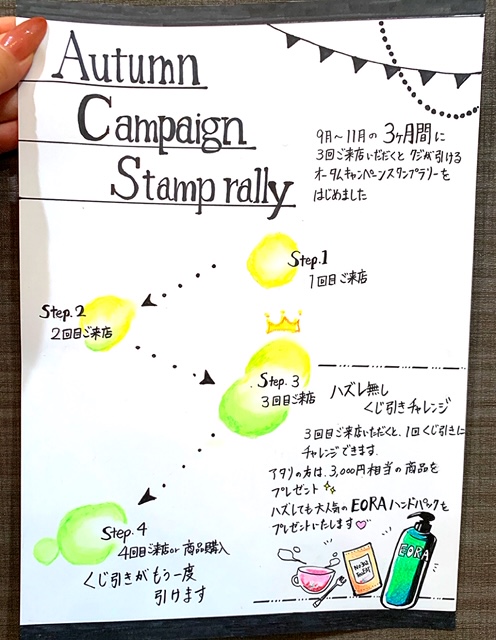 Autumn
Campaign
Stamp rally
9月～11月の3ヶ月間に
3回ご来店いただくと クジが引ける
オータムキャンペーンスタンプラリーを
はじめました
Step.1
1回目ご来店
Step.2
2回目ご来店
Step.3
3回目ご来店
ハズレ無し
くじ引きチャレンジ
3回目ご来店いただくと、1回くじ引きに
チャレンジできます.
アタリの方は、3,000円相当の商品を
プレゼント
ハズレても大人気のEORAハンドパックを
プレゼントいたします
Step.4
4回目ご来店or 商品購入
くじ引きがもう一度
引けます
EORA